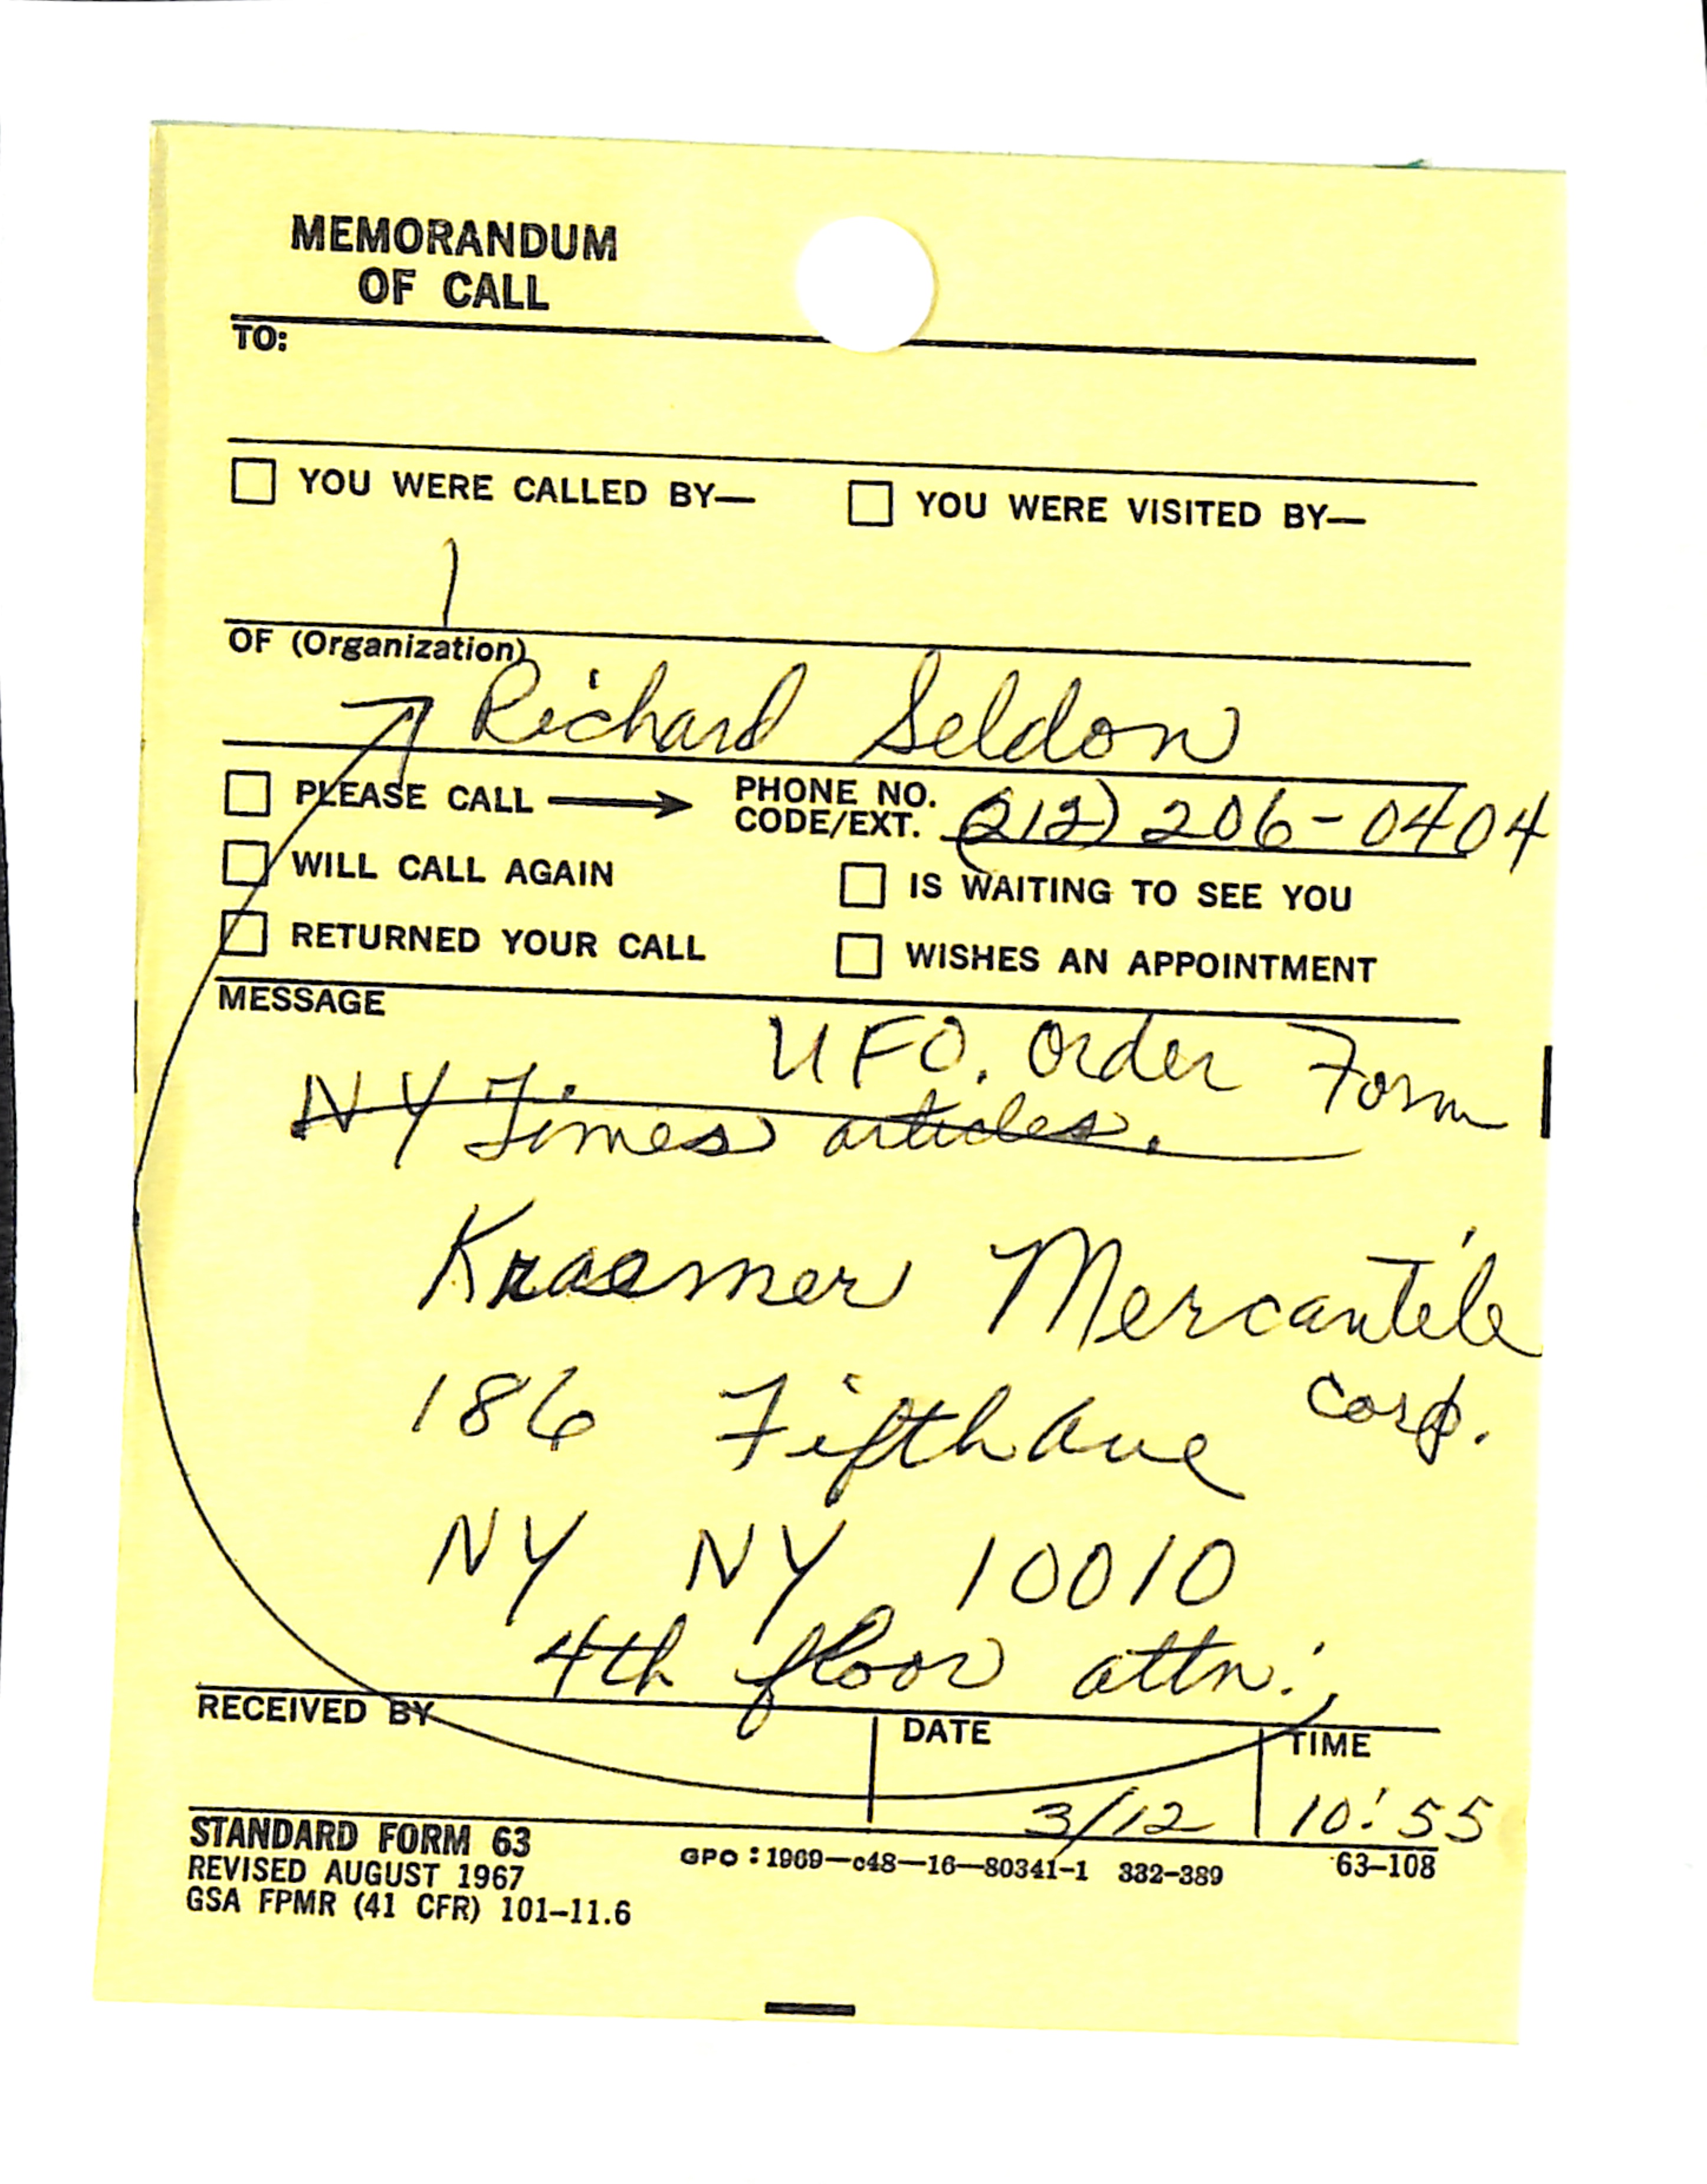 MEMORANDUM
OF CALL
TO:
YOU WERE CALLED BY— YOU WERE VISITED BY—
OF (Organization)
Richard Seldon
PLEASE CALL PHONE NO. CODE/EXT. (212) 206-0404
WILL CALL AGAIN IS WAITING TO SEE YOU
RETURNED YOUR CALL WISHES AN APPOINTMENT
MESSAGE
UFO. Order Form
NY Times articles.
Kraemer Mercantile
Corp.
186 Fifth Ave
NY NY 10010
4th floor attn:
RECEIVED BY DATE TIME
3/12 10:55
STANDARD FORM 63
REVISED AUGUST 1967
GSA FPMR (41 CFR) 101–11.6
GPO : 1969—c48—16—80341-1 332-389 63–108